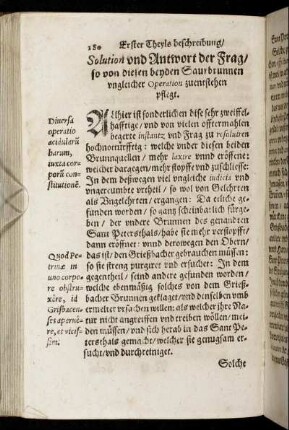 180 Erster Theyls beschreibung/
Solution vnd Antwort der Frag/
so von diesen beyden Saurbrunnen
vngleicher Operation zuentstehen
pflegt.
Diuersa
operatio
acidularū
harum,
iuxta cor-
porū con-
stitutionē.
ALlhier ist sonderlichen dise sehr zweiffel-
hafftige/ vnd von vielen offtermahlen
begerte instantz vnd Frag zu resoluiren
hochnotürfftig: welche vnder diesen beiden
Brunnquellen/ mehr laxire vnnd eröffne:
welcher dargegen/ mehr stopffe vnd zuschliesse?
In dem deßwegen viel vngleiche iudicia vnd
vngereumbte vrtheil/ so wol von Gelehrten
als Vngelehrten/ ergangen: Da etliche ge-
funden worden/ so gantz scheinbarlich fürge-
ben/ der vndere Brunnen des genandten
Sant Petersthals/ habe sie mehr verstopfft/
dann eröffnet: vnnd derowegen den Obern/
das ist/ den Grießbacher gebrauchen müssen:
so sie streng purgiert vnd ersucht: In dem
gegentheil/ seind andere gefunden worden/
welche ebenmäßig solches von dem Grieß-
bacher Brunnen geklaget/ vnd denselben vnb
ermelter vrsachen willen: als welcher ihre Na-
tur nicht angreiffen vnd treiben wöllen/ mei-
den müssen/ vnd sich herab in das Sant Pe-
tersthals gemacht/ welcher sie genugsam er-
sucht/ vnd durchtreniget.
Quod Pe-
trinæ in
uno corpo-
re obstru-
xére, id
Grisbacen-
ses aperuê-
re, et vicis-
sim.
Solche